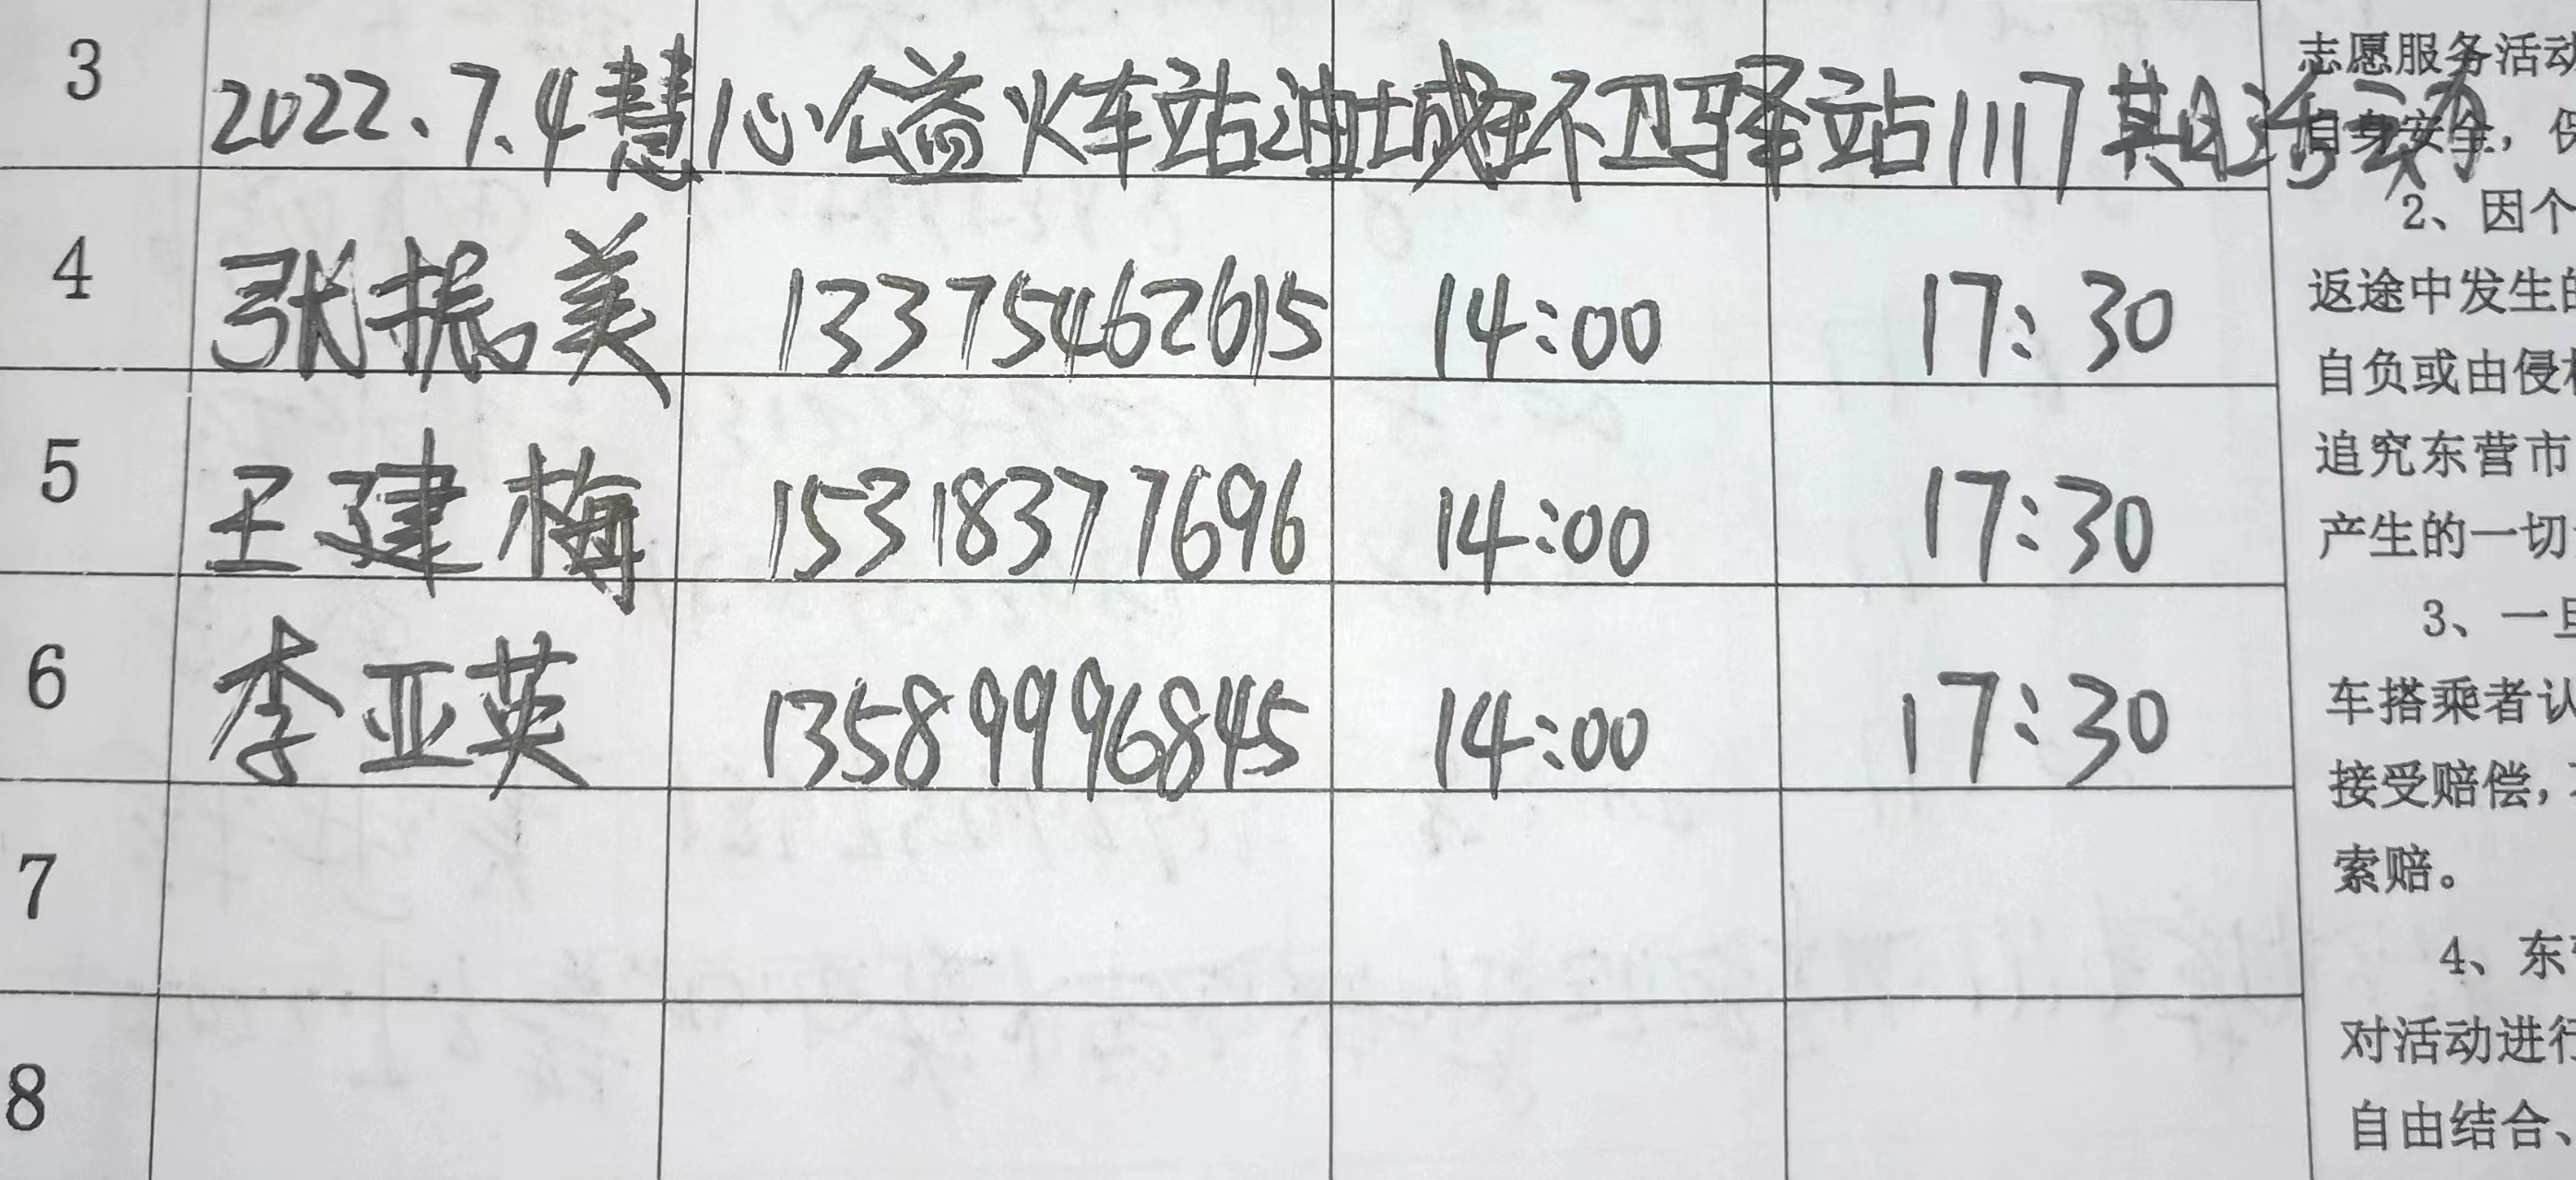 3 2022.7.4慧心公益火车站油城环卫驿站1117期活动
4 张振美 13375462615 14:00 17:30
5 王建梅 15318377696 14:00 17:30
6 李亚英 13589996845 14:00 17:30
7
8
志愿服务活动
自身安全，保
2、因个
返途中发生的
自负或由侵权
追究东营市
产生的一切
3、一旦
车搭乘者认
接受赔偿，
索赔。
4、东营
对活动进行
自由结合、